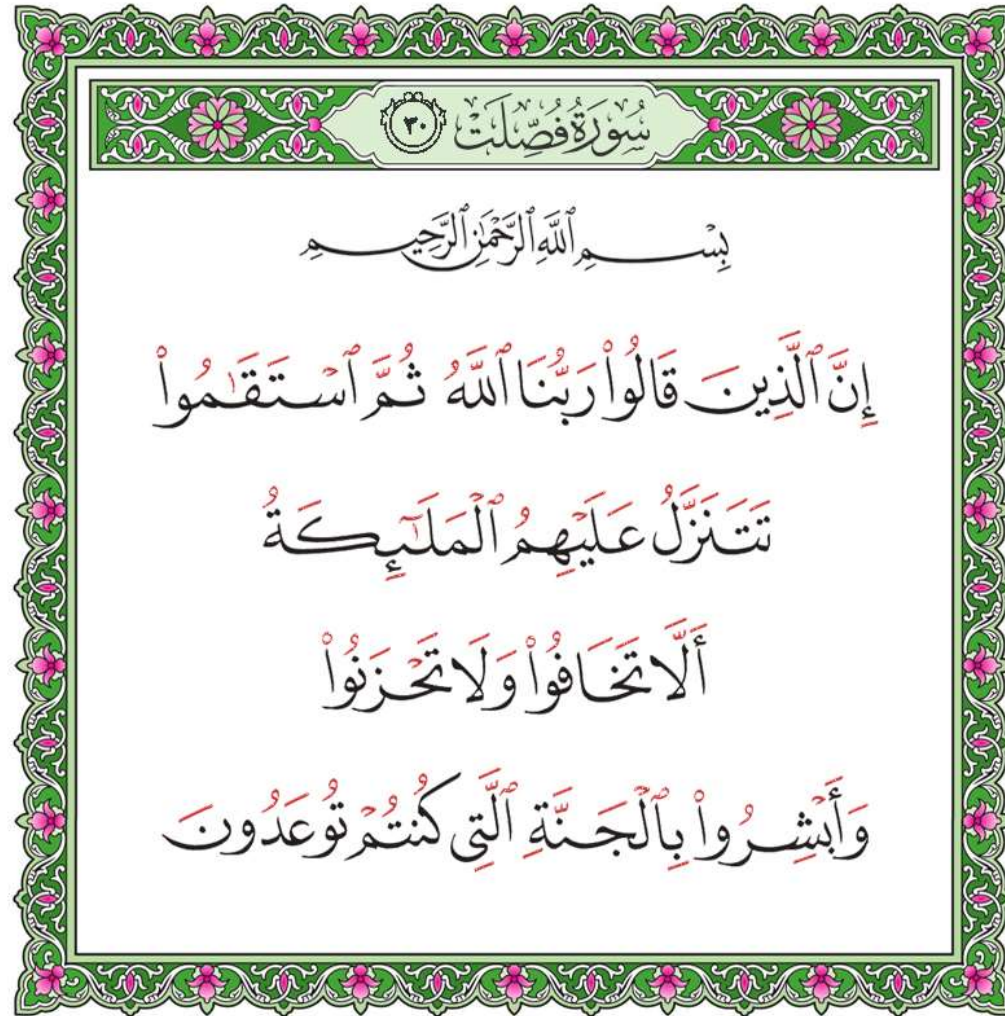 سُورَةُ فُصِّلَتْ ٣٠
بِسْمِ ٱللَّهِ ٱلرَّحْمَٰنِ ٱلرَّحِيمِ
إِنَّ ٱلَّذِينَ قَالُوا۟ رَبُّنَا ٱللَّهُ ثُمَّ ٱسْتَقَٰمُوا۟
تَتَنَزَّلُ عَلَيْهِمُ ٱلْمَلَٰٓئِكَةُ
أَلَّا تَخَافُوا۟ وَلَا تَحْزَنُوا۟
وَأَبْشِرُوا۟ بِٱلْجَنَّةِ ٱلَّتِى كُنتُمْ تُوعَدُونَ